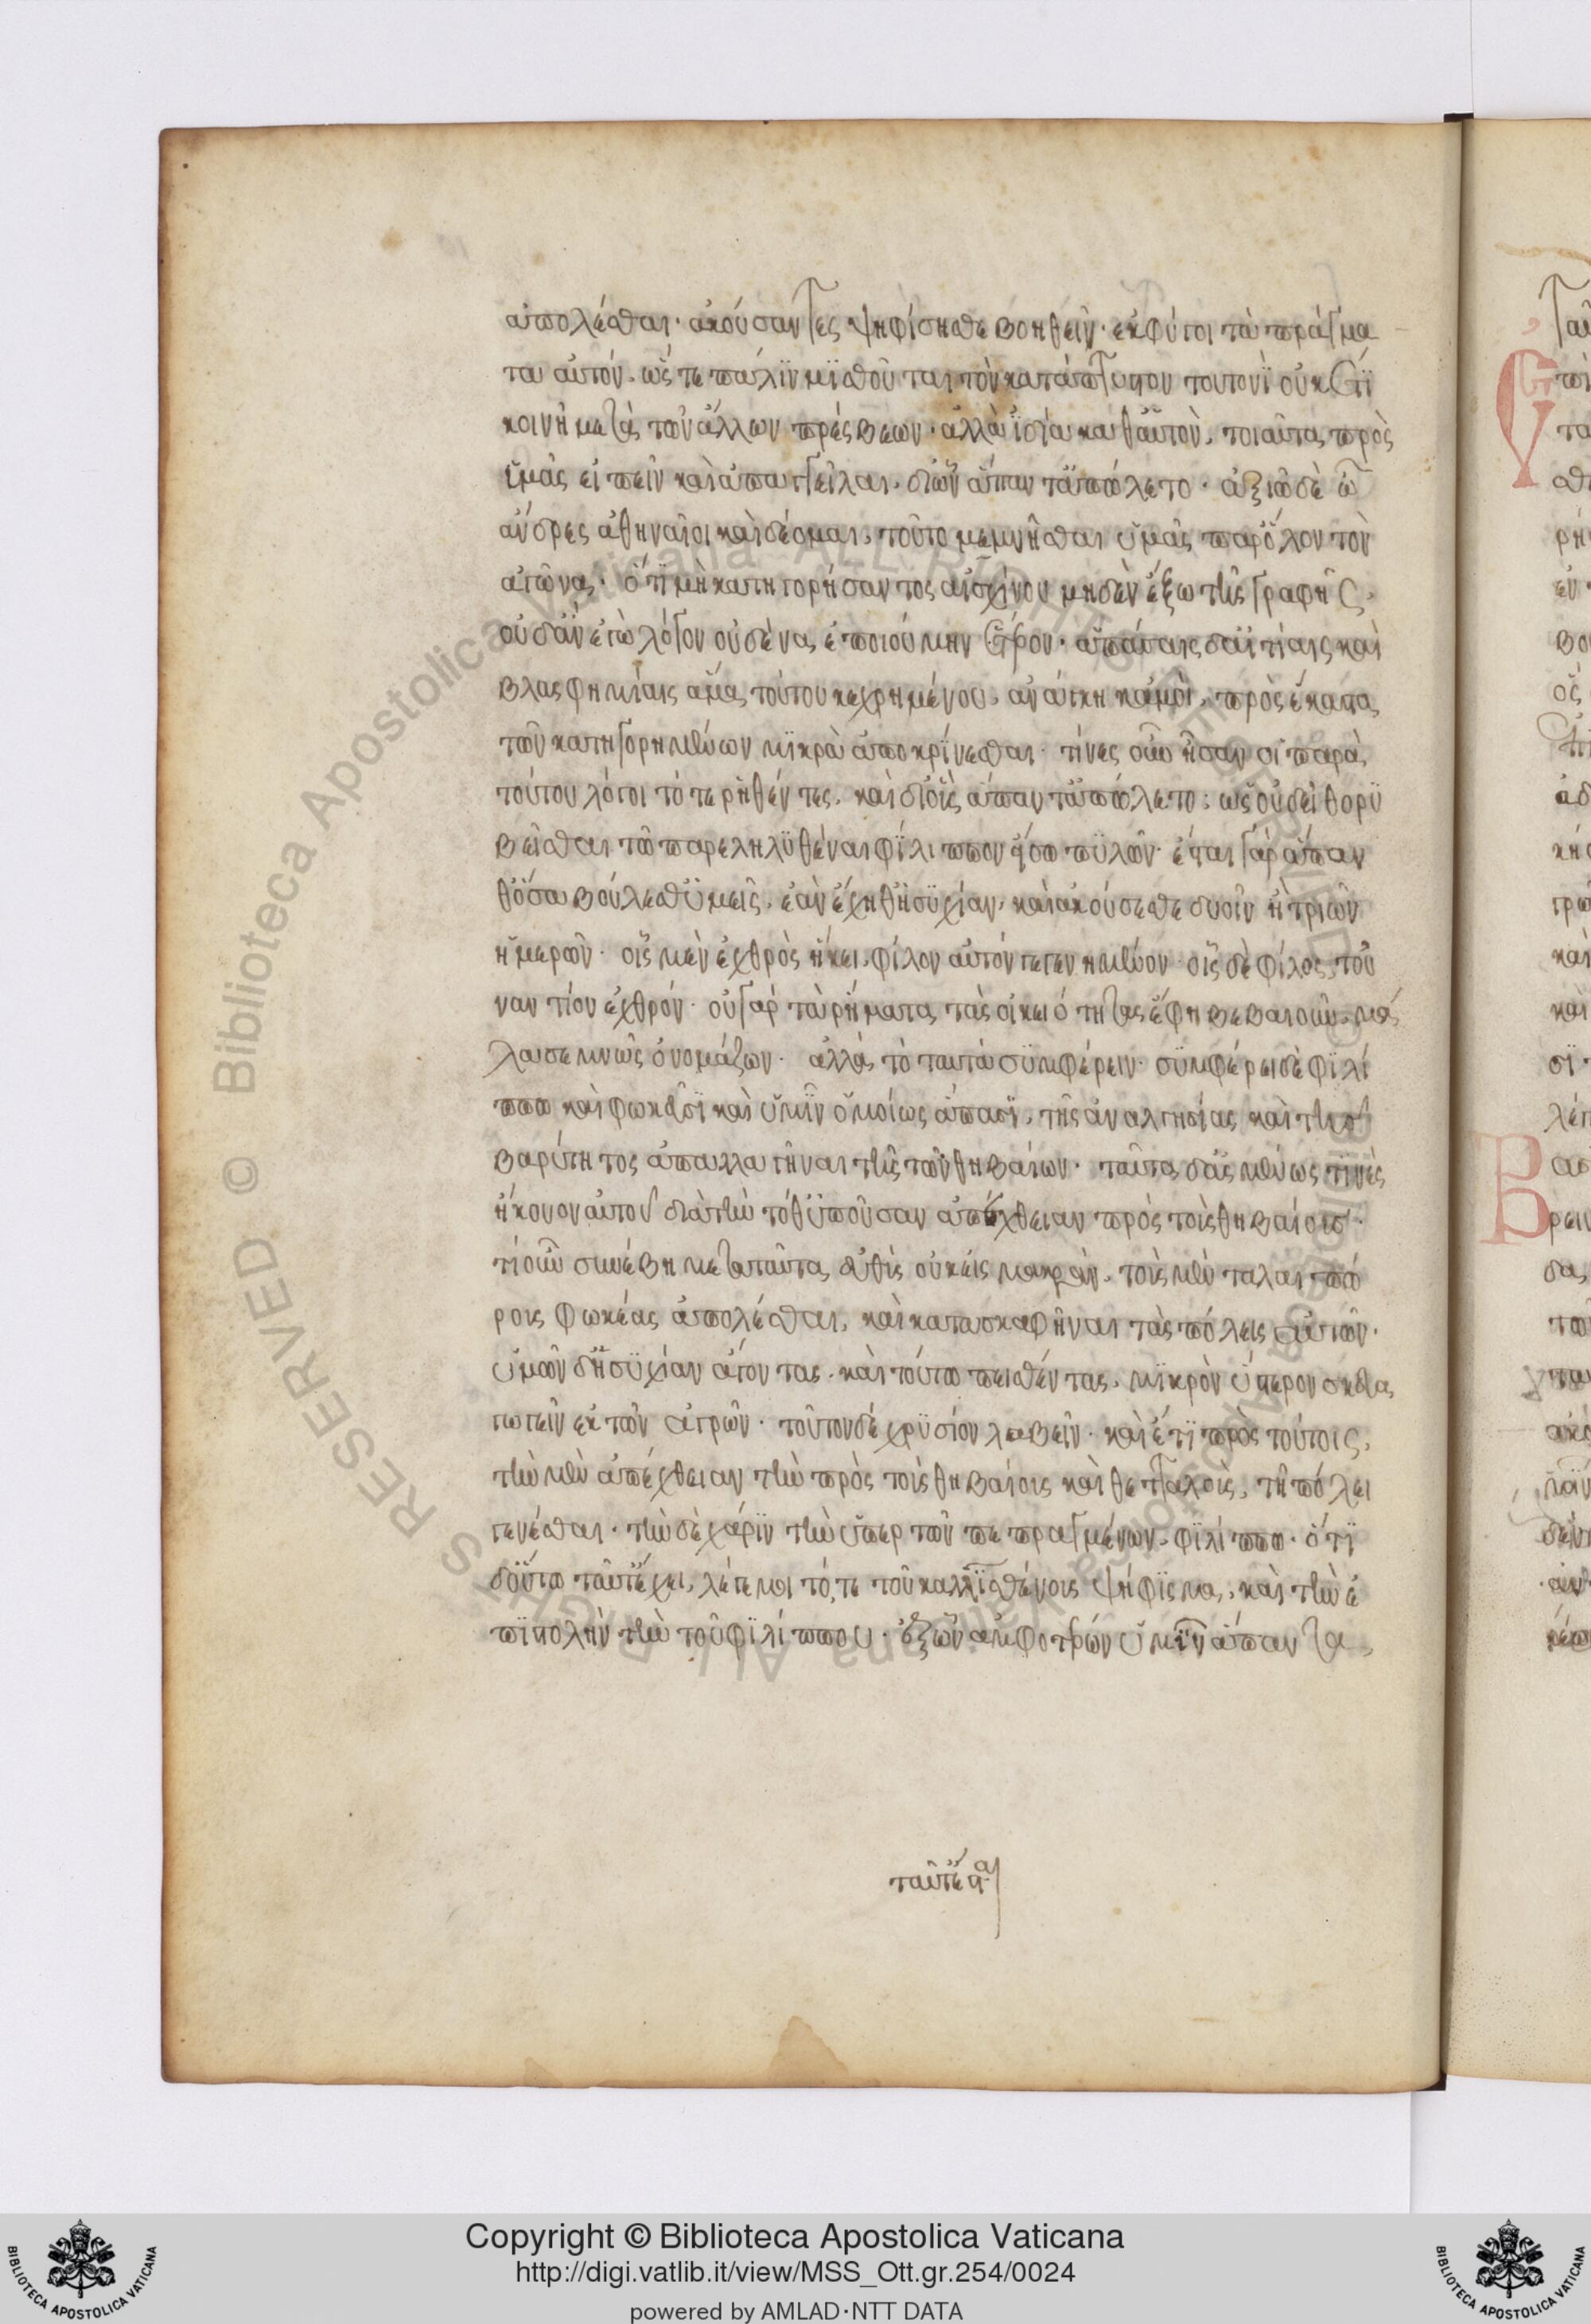 ἀπολέσθαι· ἀκούσαντες ψηφίσησθε βοηθεῖν· ἐκφύγοι τὰ πράγμα
τα αὐτόν. ὥς τε πάλϊν μϊσθοῦται τὸν κατάπτυστον τουτονῒ οὐκ ἔτϊ
κοινῆ μετὰ τῶν ἄλλων πρέσβεων· ἀλλὰ ἰδία καθ' αὑτὸν, τοιαῦτα πρὸς
ὑμᾶς εἰπεῖν καὶ ἀπαγγεῖλαι. δι' ὧν ἅπαντ' ἀπώλετο· ἀξιῶ δὲ ὦ
ἄνδρες ἀθηναῖοι καὶ δέομαι, τοῦτο μεμνῆσθαι ὑμᾶς παρ' ὅλον τὸν
ἀγῶνα· ὅτϊ μὴ κατηγορήσαντος αἰσχίνου μηδὲν ἔξω τῆς γραφῆς.
οὐδ' ἂν ἐγὼ λόγον οὐδένα ἐποιούμην ἕτερον· ἁπάσαις δ' αἰτίαις καὶ
βλασφημίαις ἅμα τούτου κεχρημένου, ἀνάγκη κἀμοὶ, πρὸς ἕκαστα
τῶν κατηγορημένων μϊκρὰ ἀποκρίνεσθαι· τίνες οὖν ἦσαν οἱ παρὰ
τούτου λόγοι τότε ῥηθέντες. καὶ δι' οὓς ἅπαντ' ἀπώλετο; ὡς οὐ δεῖ θορϋ
βεῖσθαι τῶ παρεληλϋθέναι φίλιππον εἴσω πϋλῶν· ἔσται γὰρ ἅπαν
θ' ὅσα βούλεσθ' ὑμεῖς, ἐὰν ἔχηθ' ἡσϋχίαν, καὶ ἀκούσεσθε δυοῖν ἢ τριῶν
ἡμερῶν· οἷς μὲν ἐχθρὸς ἥκει, φίλον αὐτόν γεγενημένον· οἷς δὲ φίλος, τοὐ
ναντίον ἐχθρόν· οὐ γὰρ τὰ ῥήματα τὰς οἰκειότητας ἔφη βεβαιοῦν, μά
λα σεμνῶς ὀνομάζων· ἀλλὰ τὸ ταυτὰ σϋμφέρειν· σϋμφέρει δὲ φϊλί
ππω καὶ φωκεῦσϊ καὶ ὑμῖν ὁμοίως ἅπασϊ, τῆς ἀναλγησίας καὶ τῆς
βαρύτητος ἀπαλλαγῆναι τῆς τῶν θηβαίων· ταῦτα δ' ἀσμένως τϊνὲς
ἤκουον αὐτοῦ διὰ τὴν τόθ' ὑποῦσαν ἀπέχθειαν πρὸς τοὺς θηβαίους·
τί οὖν συνέβη μετὰ ταῦτα εὐθὺς οὐκ εἰς μακρὰν, τοὺς μὲν ταλαιπώ
ρους φωκέας ἀπολέσθαι, καὶ κατασκαφῆναι τὰς πόλεις αὐτῶν·
ὑμῶν δ' ἡσϋχίαν ἀγόντας· καὶ τούτω πεισθέντας, μϊκρὸν ὕστερον σκευα
γωγεῖν ἐκ τῶν ἀγρῶν· τοῦτον δὲ χρϋσίον λαβεῖν· καὶ ἔτϊ πρὸς τούτοις,
τὴν μὲν ἀπέχθειαν τὴν πρὸς τοὺς θηβαίους καὶ θετταλοὺς, τῆ πόλει
γενέσθαι· τὴν δὲ χάρϊν τὴν ὑπὲρ τῶν πεπραγμένων, φϊλίππω· ὅτϊ
δ' οὕτω ταῦτ' ἔχει, λέγε μοι τό, τε τοῦ καλλϊσθένους ψήφϊσμα, καὶ τὴν ἐ
πϊστολὴν τὴν τοῦ φϊλίππου· ἐξ ὧν ἀμφοτέρων ὑμῖν ἅπαντα
ταῦτ' ἔσται